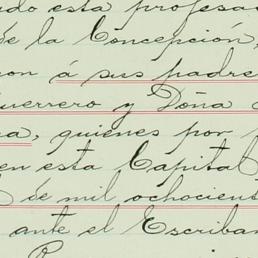 do esta profesa
de la Concepción,
on á sus padre
Guerrero y Doña
a, quienes por
en esta Capital
de mil ochocient
ante el Escriban